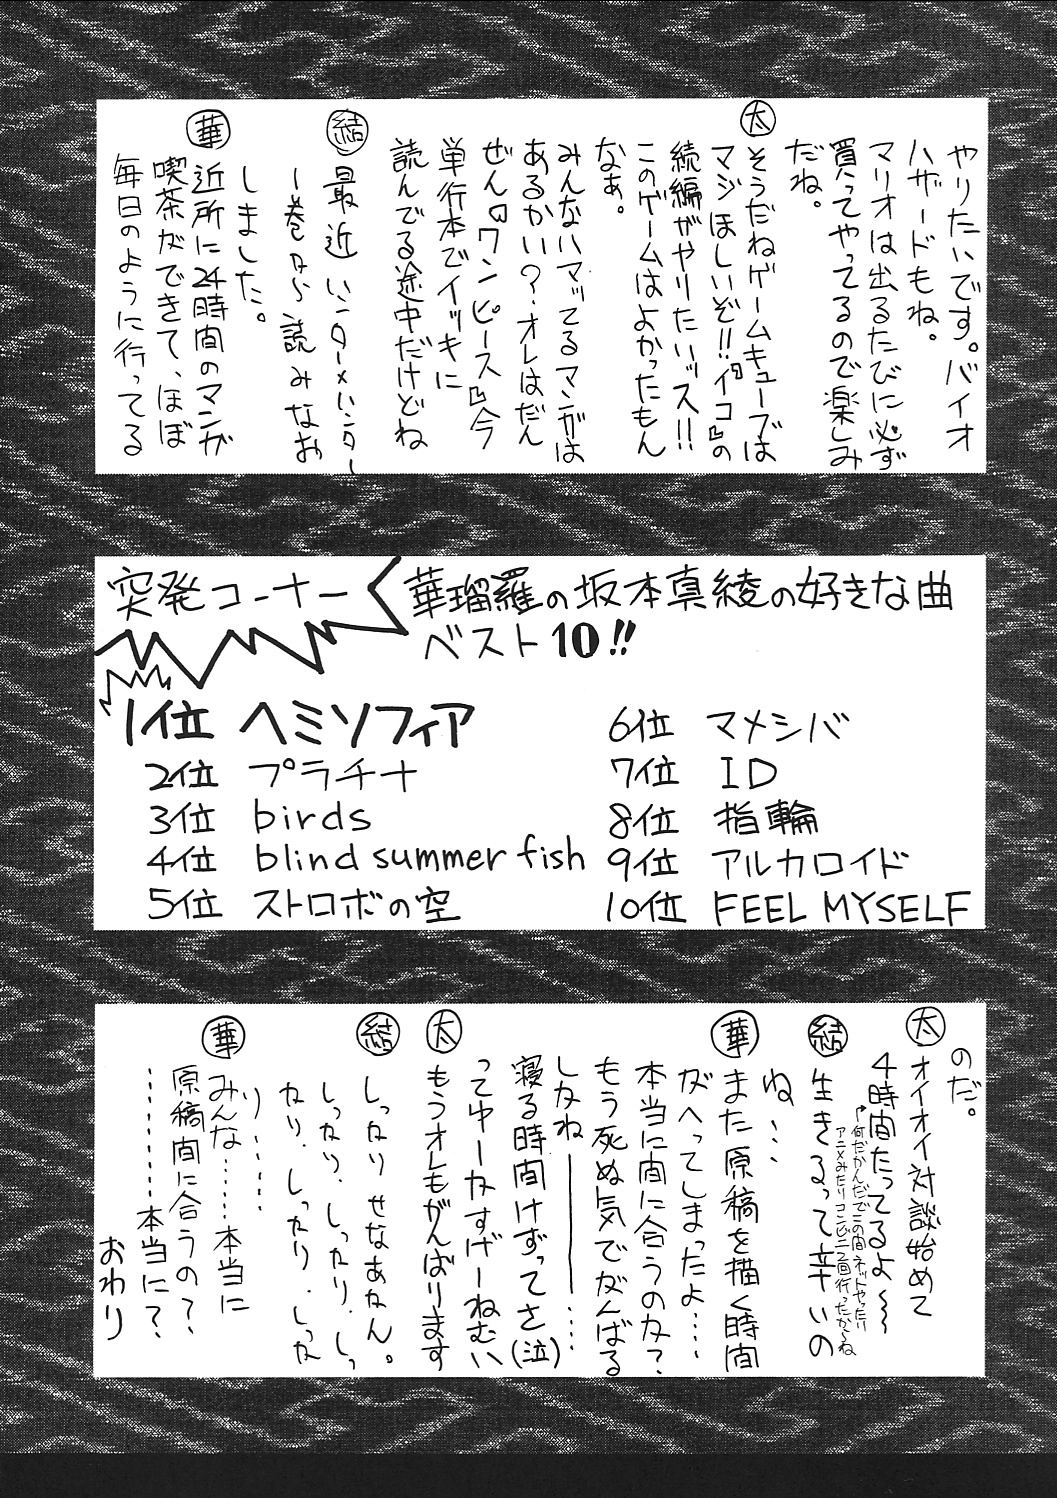 やりたいです。バイオ
ハザードもね。
マリオは出るたびに必ず
買ってやってるので楽しみ
だね。
太 そうだねゲームキューブは
マジほしいぞ!!『イコ』の
続編がやりたいッス!!
このゲームはよかったもん
なぁ。
みんなハマッてるマンガは
あるかい?オレはだん
ぜん『ワンピース』今
単行本でイッキに
読んでる途中だけどね
結 最近ハンターハンター
1巻から読みなお
しました。
華 近所に24時間のマンガ
喫茶ができて、ほぼ
毎日のように行ってる
突発コーナー
華瑠羅の坂本真綾の好きな曲
ベスト10!!
1位 ヘミソフィア
2位 プラチナ
3位 birds
4位 blind summer fish
5位 ストロボの空
6位 マメシバ
7位 ID
8位 指輪
9位 アルカロイド
10位 FEEL MYSELF
のだ。
太 オイオイ対談始めて
4時間たってるよ〜〜
何だかんだでこの間ネットやったり
アニメみたりコンビニ2回行ったからね
結 生きるって辛いの
ね…
華 また原稿を描く時間
がへってしまったよ……
本当に間に合うのか?
もう死ぬ気でがんばる
しかねーーー……
寝る時間けずってさ(泣)
ってゆーかすげーねむい
太 もうオレもがんばります
結 しっかりせなあかん。
しっかり.しっかり.しっ
かり.しっかり.しっか
り……
華 みんな……本当に
原稿間に合うの?
……………本当に?
おわり